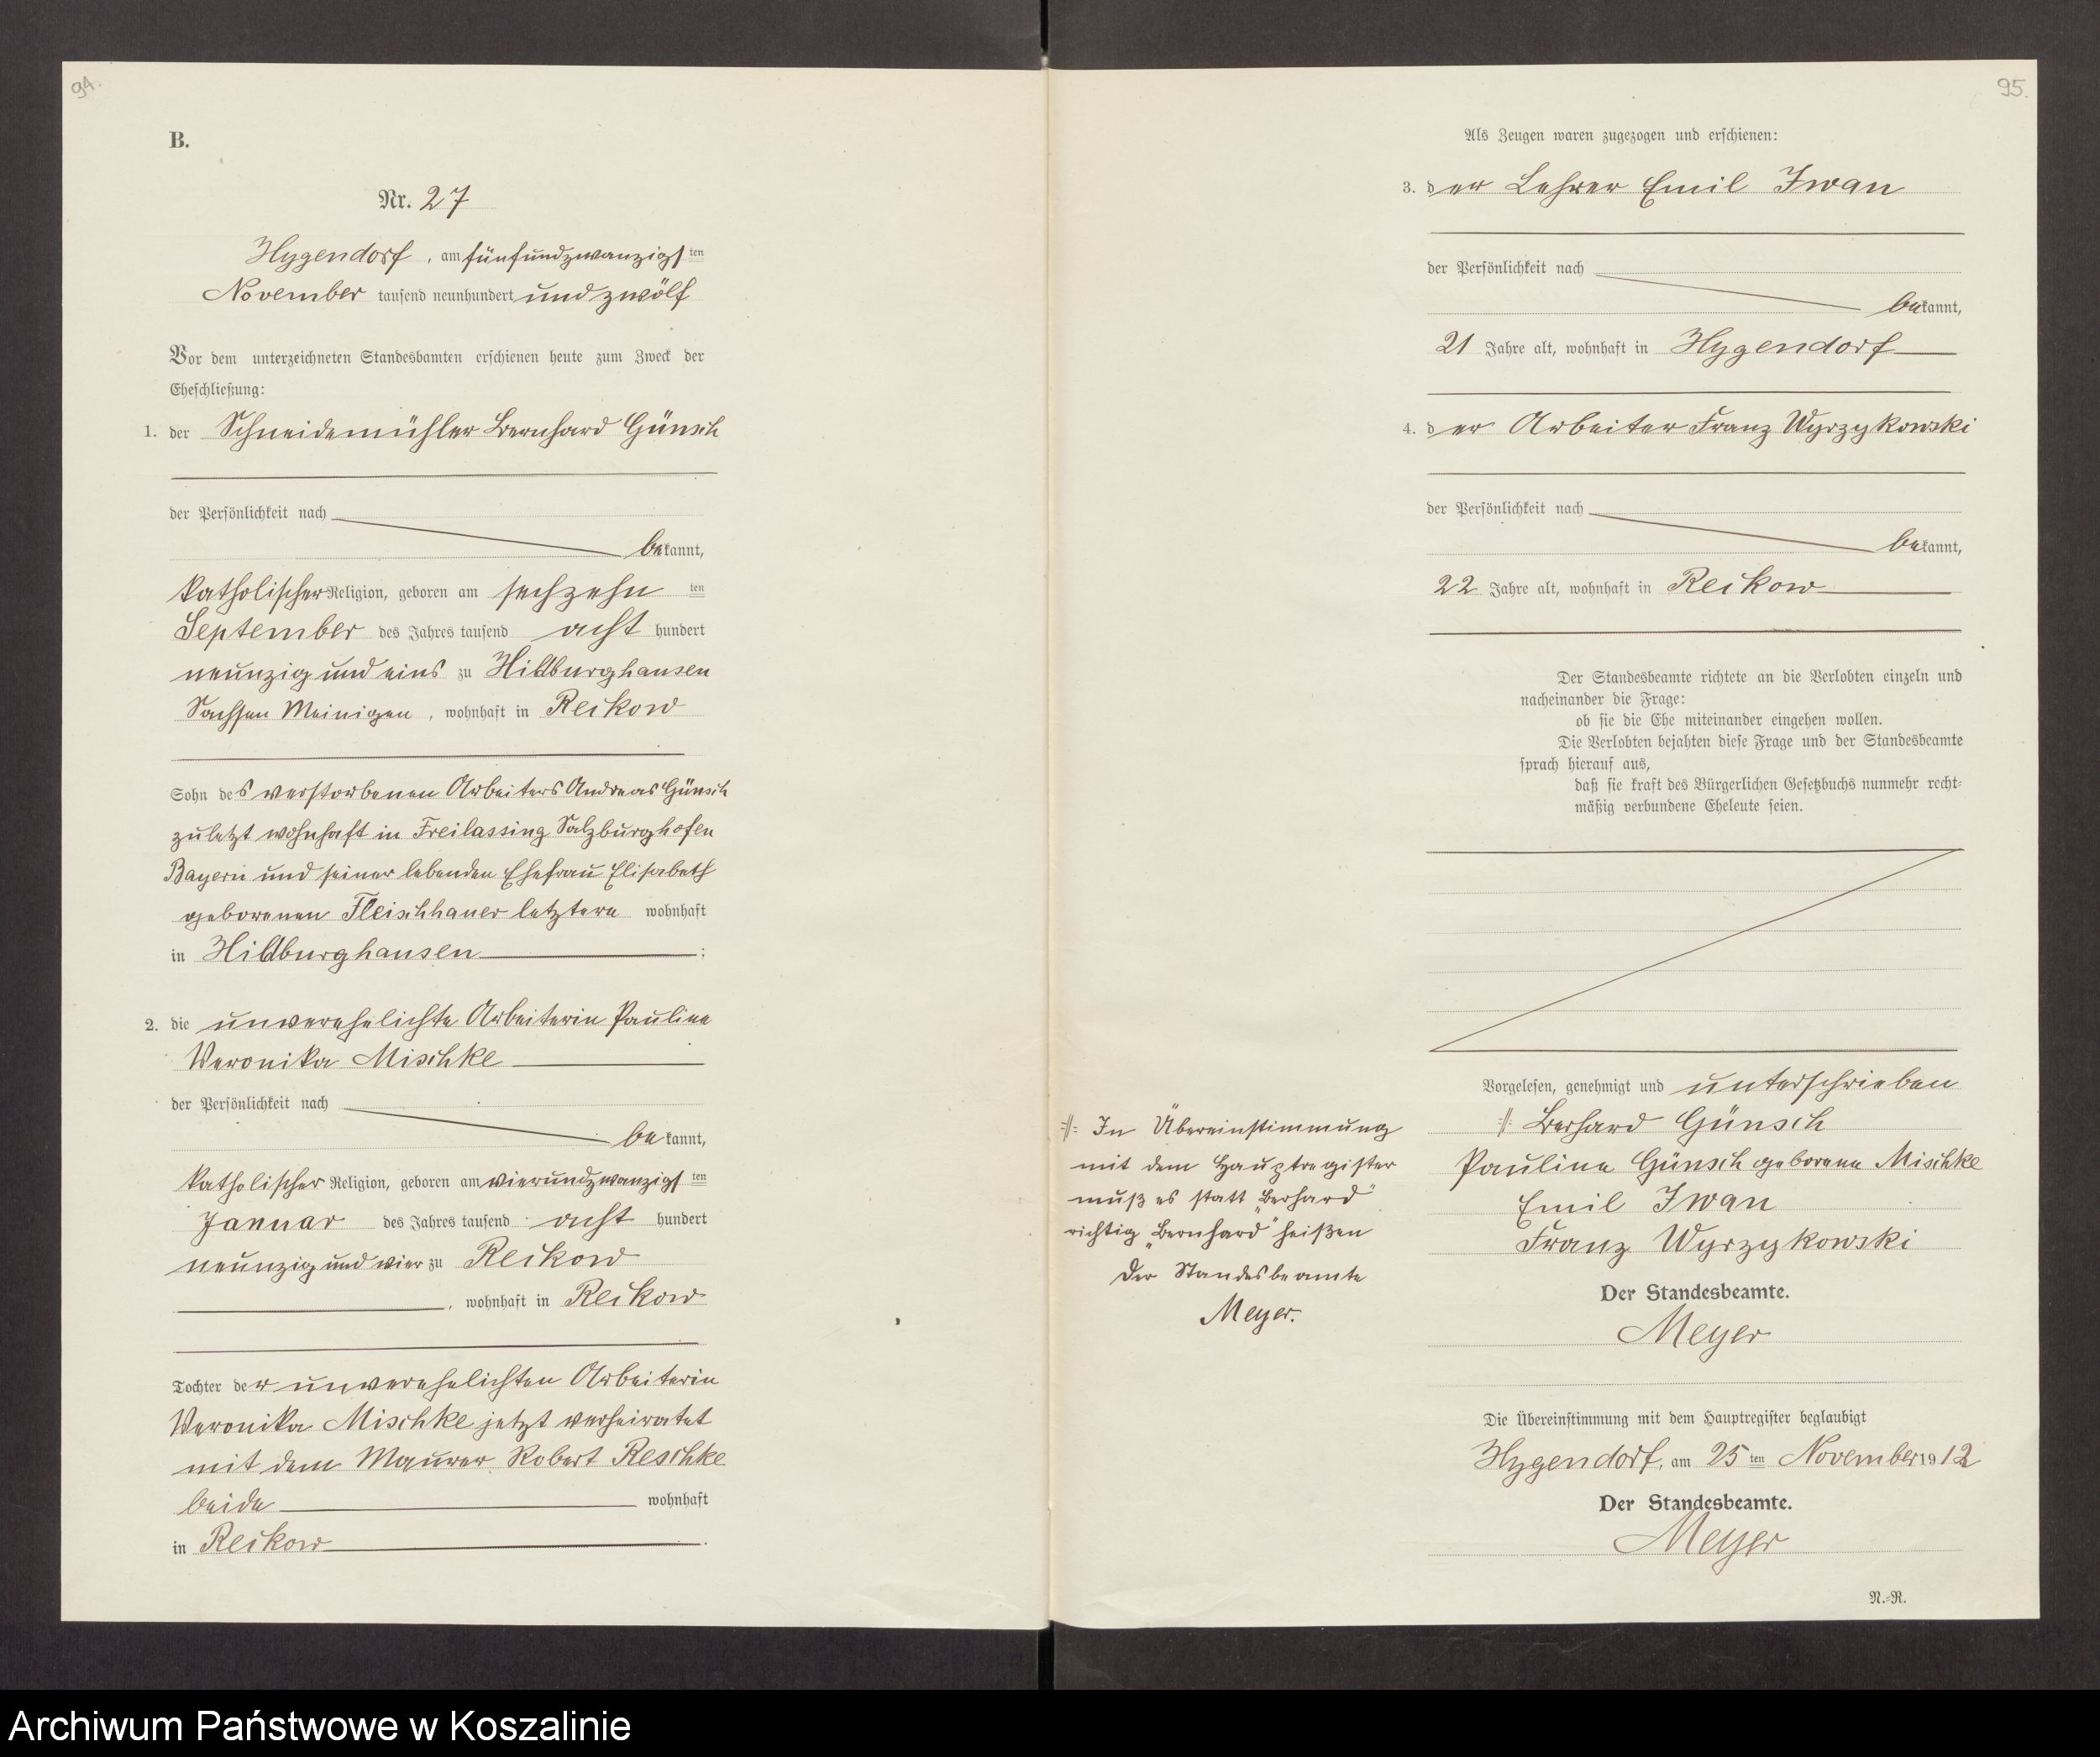 94.
B.
Nr. 27
Hygendorf, am fünfundzwanzigsten
November tausend neunhundert und zwölf
Vor dem unterzeichneten Standesbamten erschienen heute zum Zweck der
Eheschließung:
1. der Schneidemühler Bernhard Günsch
der Persönlichkeit nach
bekannt,
katholischer Religion, geboren am sechzehn ten
September des Jahres tausend acht hundert
neunzig und eins zu Hildburghausen
Sachsen Meinigen, wohnhaft in Reikow
Sohn des verstorbenen Arbeiters Andreas Günsch
zuletzt wohnhaft in Freilassing Salzburghofen
Bayern und seiner lebenden Ehefrau Elisabeth
geborenen Fleischhauer letztere wohnhaft
in Hildburghausen :
2. die unverehelichte Arbeiterin Pauline
Veronika Mischke
der Persönlichkeit nach
bekannt,
katholischer Religion, geboren am vierundzwanzigsten
Januar des Jahres tausend acht hundert
neunzig und vier zu Reikow
, wohnhaft in Reikow
Tochter der unverehelichten Arbeiterin
Veronika Mischke jetzt verheiratet
mit dem Maurer Robert Reschke
beide wohnhaft
in Reikow .
95.
Als Zeugen waren zugezogen und erschienen:
3. der Lehrer Emil Iwan
der Persönlichkeit nach
bekannt,
21 Jahre alt, wohnhaft in Hygendorf
4. der Arbeiter Franz Wyrzykowski
der Persönlichkeit nach
bekannt,
22 Jahre alt, wohnhaft in Reikow
Der Standesbeamte richtete an die Verlobten einzeln und
nacheinander die Frage:
ob sie die Ehe miteinander eingehen wollen.
Die Verlobten bejahten diese Frage und der Standesbeamte
sprach hierauf aus,
daß sie kraft des Bürgerlichen Gesetzbuchs nunmehr recht-
mäßig verbundene Eheleute seien.
Vorgelesen, genehmigt und unterschrieben
Berhard Günsch
Pauline Günsch geborene Mischke
Emil Iwan
Franz Wyrzykowski
Der Standesbeamte.
Meyer
In Übereinstimmung
mit dem Hauptregister
muß es statt „Berhard"
richtig „Bernhard" heißen
Der Standesbeamte
Meyer.
Die Übereinstimmung mit dem Hauptregister beglaubigt
Hygendorf, am 25 ten November 1912
Der Standesbeamte.
Meyer
N.-R.
Archiwum Państwowe w Koszalinie